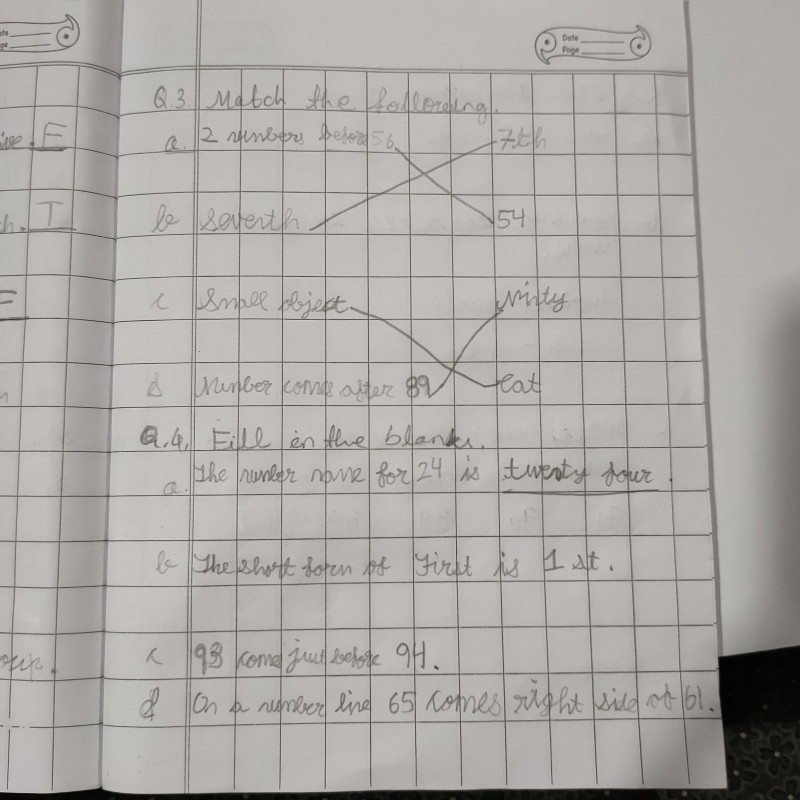 Date
Page
Q.3. Match the following.
a. 2 numbers before 56
7th
b Seventh
54
c Small object
Ninty
d Number come after 89
Cat
Q.4. Fill in the blanks.
a. The number name for 24 is twenty four.
b The short form of First is 1 st.
c 93 come just before 94.
d On a number line 65 comes right side of 61.
E
T